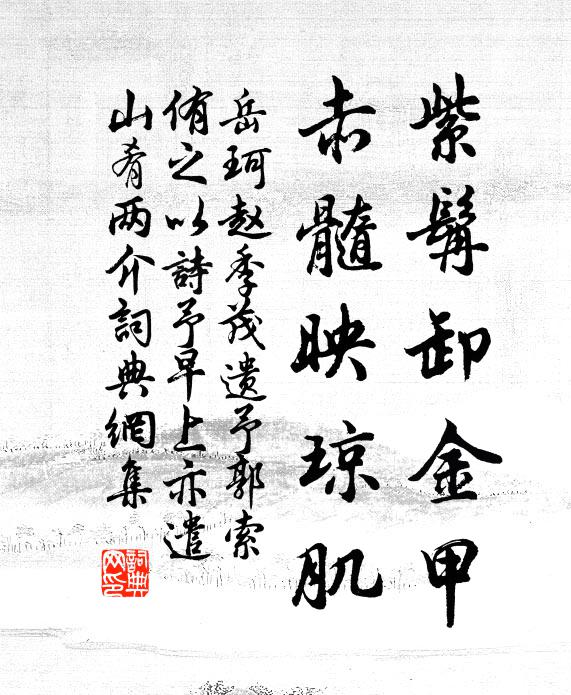 紫髯卸金甲
赤髓映琼肌
岳珂赵季茂遗予郭索
侑之以詩予早上亦遣
山肴两介詞典網集
詞典
网印